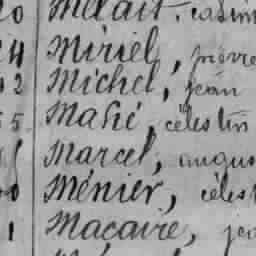 Mélait, casim
4 Miriel, pierre
2 Michel, jean
5 Mahé, célestin
Marcel, augus
0 Ménier, célest
1 Macaire, je